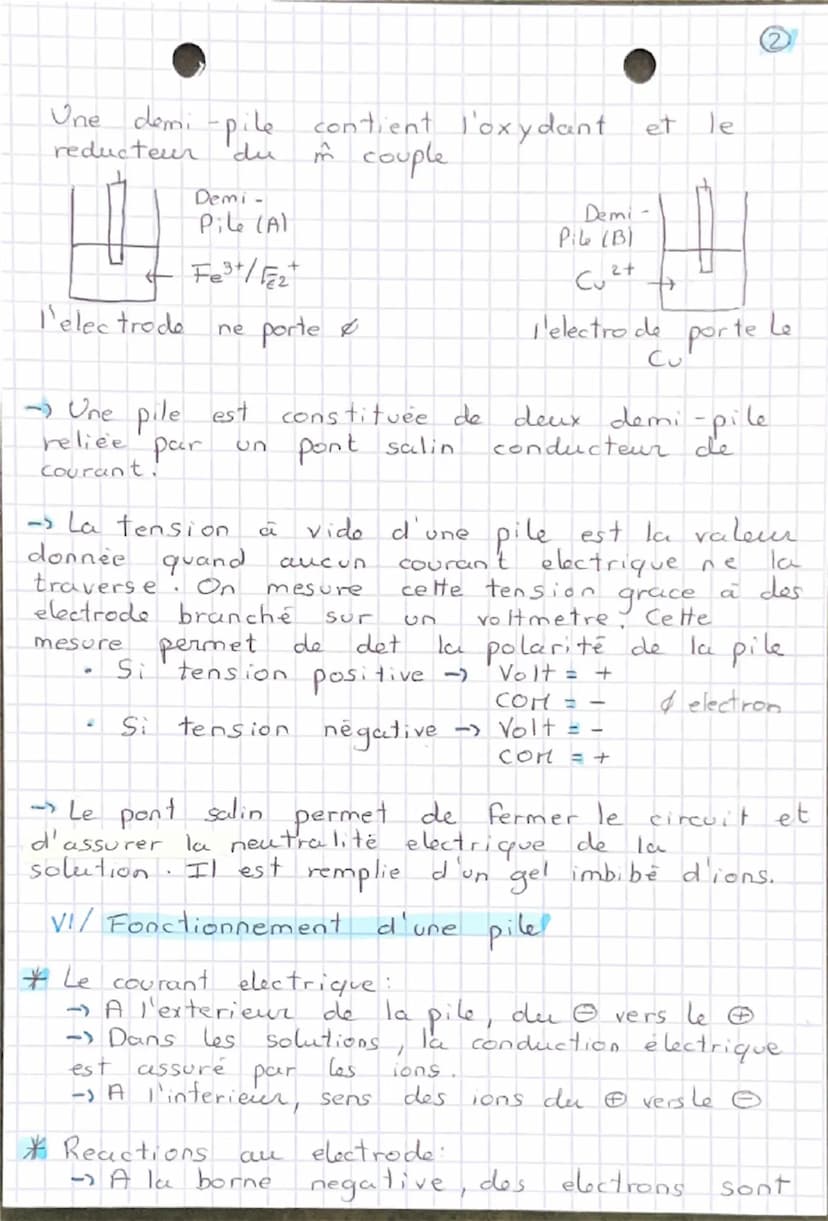 2
Une demi-pile contient l'oxydant et le
reducteur du m̂ couple
Demi-
Pile (A)
Fe³⁺/Fe2⁺
l'electrode ne porte ∅
Demi-
Pile (B)
Cu²⁺
l'electrode porte le
Cu
→ Une pile est constituée de deux demi-pile
reliée par un pont salin conducteur de
courant.
→ La tension à vide d'une pile est la valeur
donnée quand aucun courant electrique ne la
traverse. On mesure cette tension grace à des
electrode branché sur un voltmetre. Cette
mesure permet de det la polarité de la pile
• Si tension positive → Volt = +
COM = - ∅ electron
• Si tension négative → Volt = -
COM = +
→ Le pont salin permet de fermer le circuit et
d'assurer la neutralité electrique de la
solution. Il est remplie d'un gel imbibé d'ions.
VI/ Fonctionnement d'une pile
* Le courant electrique:
→ A l'exterieur de la pile, du ⊖ vers le ⊕
→ Dans les solutions, la conduction électrique
est assuré par les ions.
→ A l'interieur, sens des ions du ⊕ vers le ⊖
* Reactions au electrode:
→ A la borne negative, des electrons sont